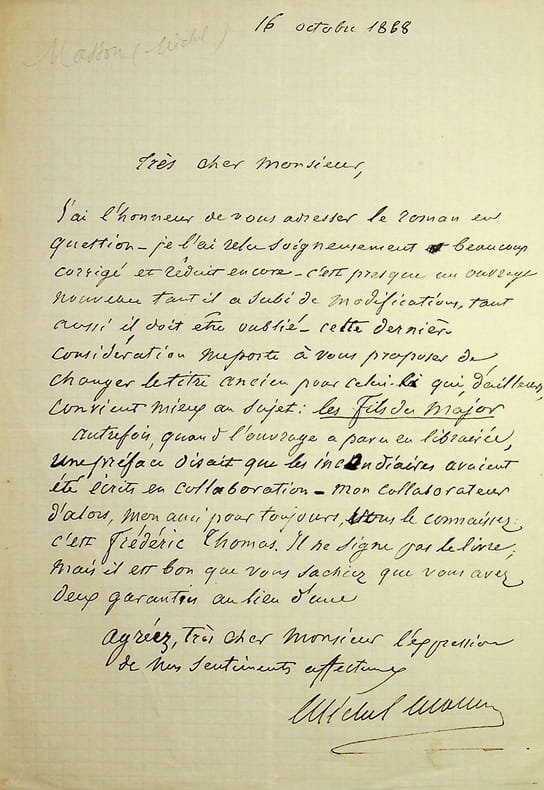 16 octobre 1868
Masson (Michel)
Très cher monsieur,
J'ai l'honneur de vous adresser le roman en
question - je l'ai relu soigneusement et beaucoup
corrigé et réduit encore - c'est presque un ouvrage
nouveau tant il a subi de modifications, tant
aussi il doit être oublié - cette dernière
considération me porte à vous proposer de
changer le titre ancien pour celui-là qui d'ailleurs,
convient mieux au sujet : les fils du major
autrefois, quand l'ouvrage a paru en librairie,
une préface disait que les incendiaires avaient
été écrits en collaboration - mon collaborateur
d'alors, mon ami pour toujours, vous le connaissez
c'est Frédéric Thomas. Il ne signe pas le livre,
mais il est bon que vous sachiez que vous avez
deux garanties au lieu d'une
agréez, très cher monsieur l'expression
de mes sentiments affectueux
Michel Masson